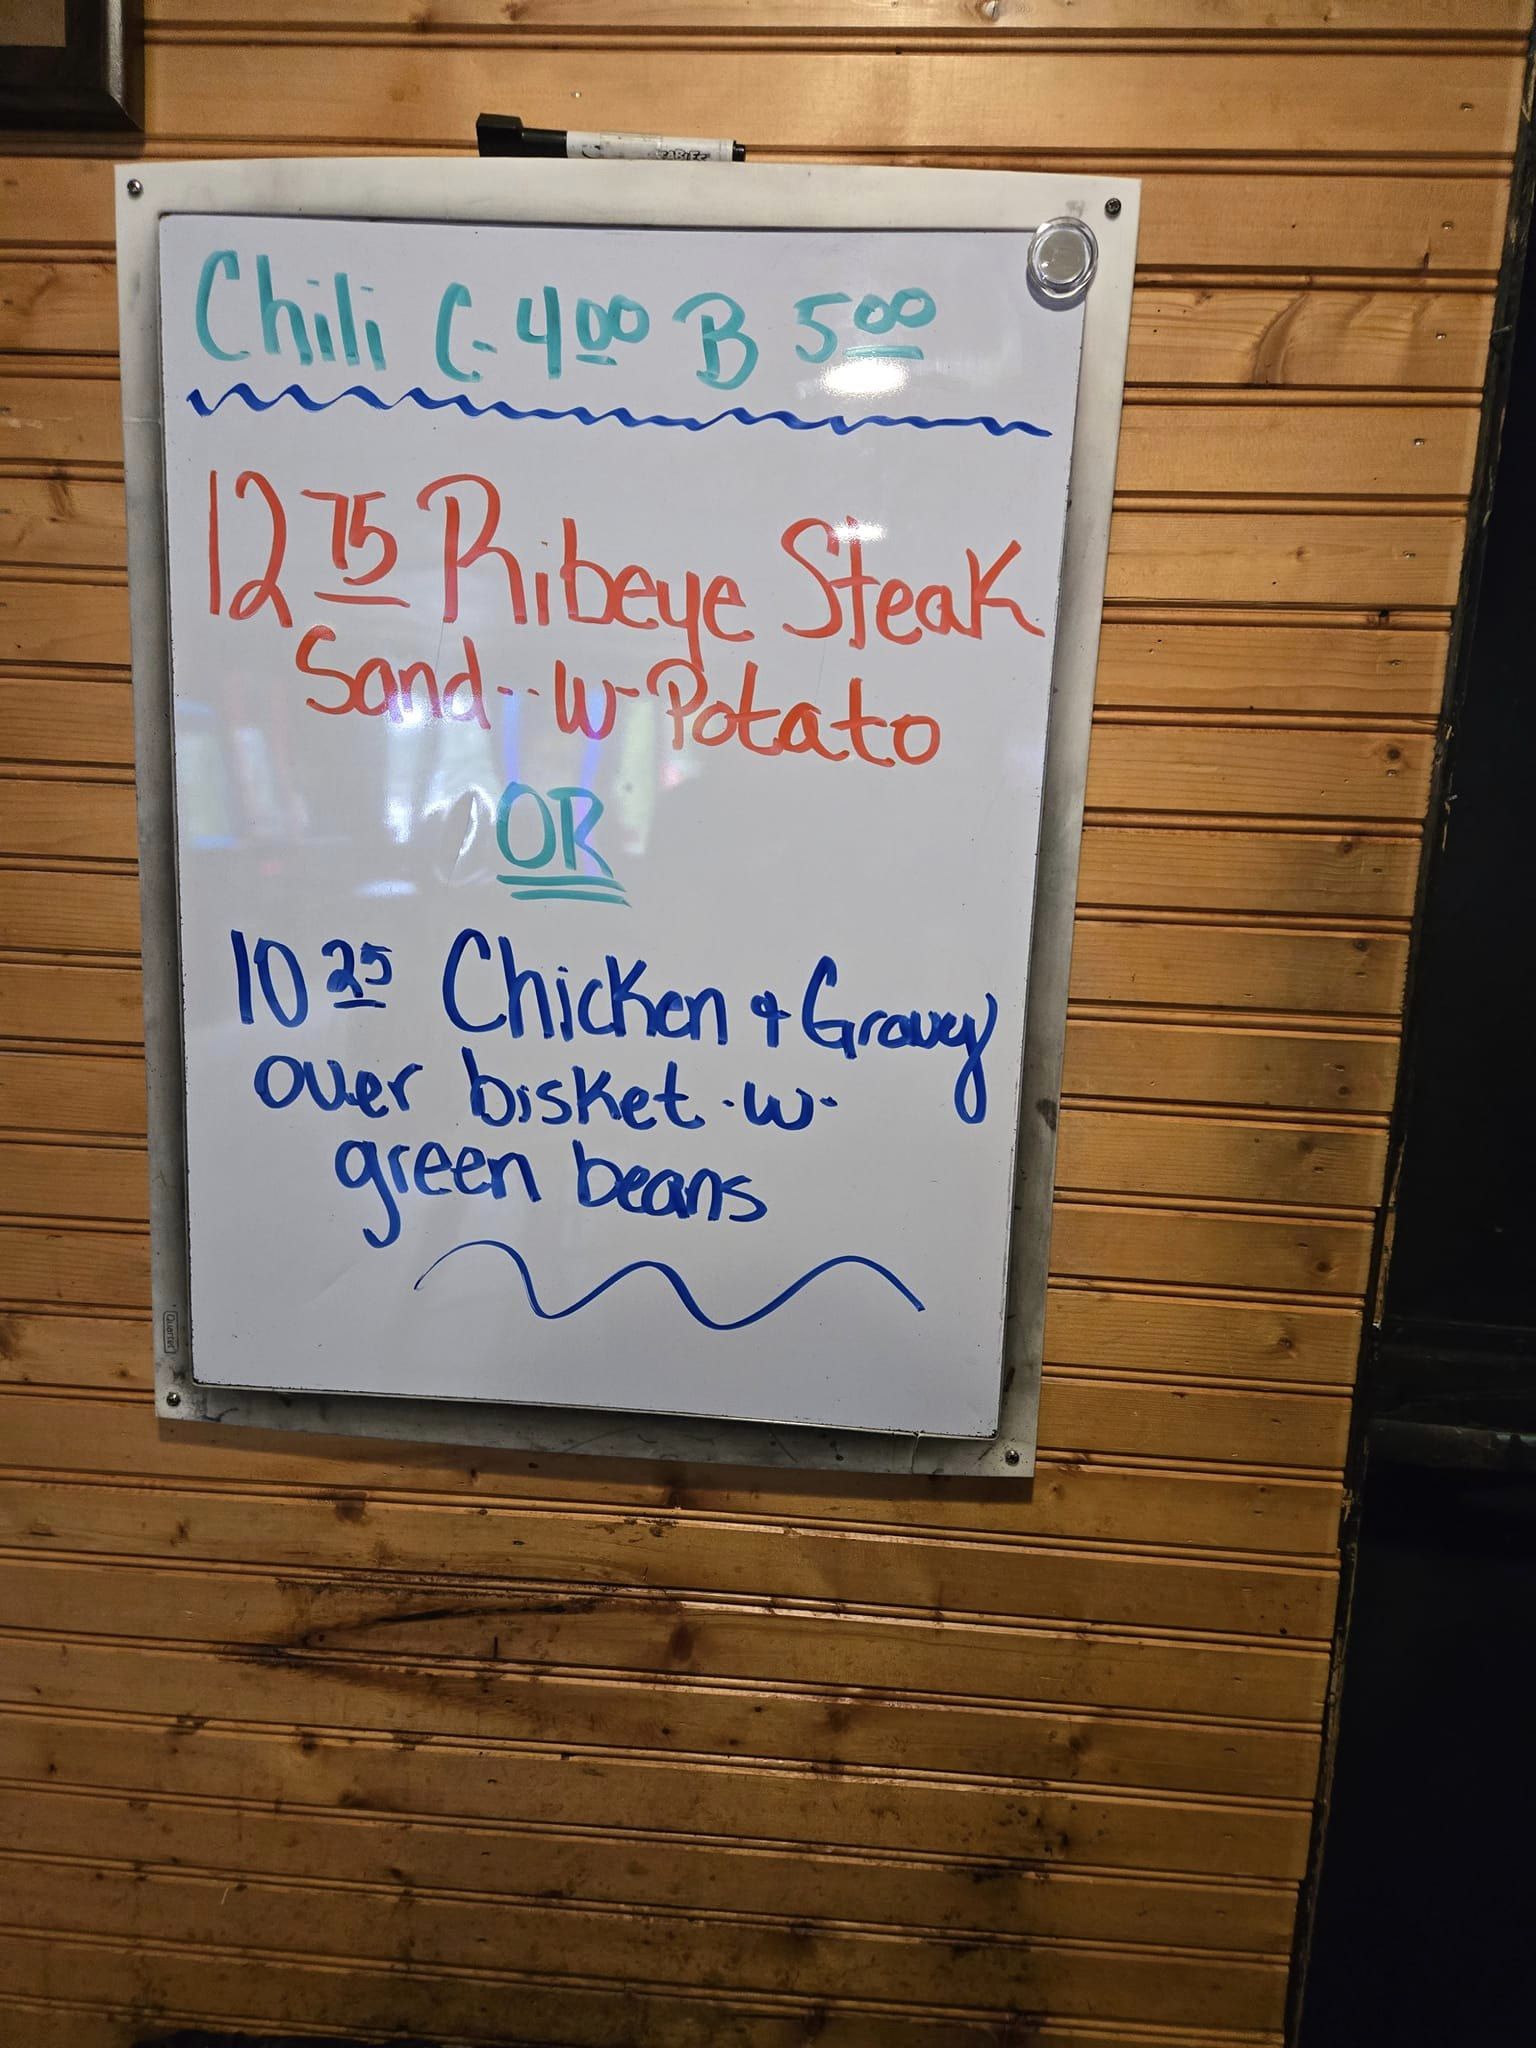 Chili C-4.00 B 5.00
12.75 Ribeye Steak
Sand-- W- Potato
OR
10.25 Chicken & Gravey
over bisket -w-
green beans
Quartet